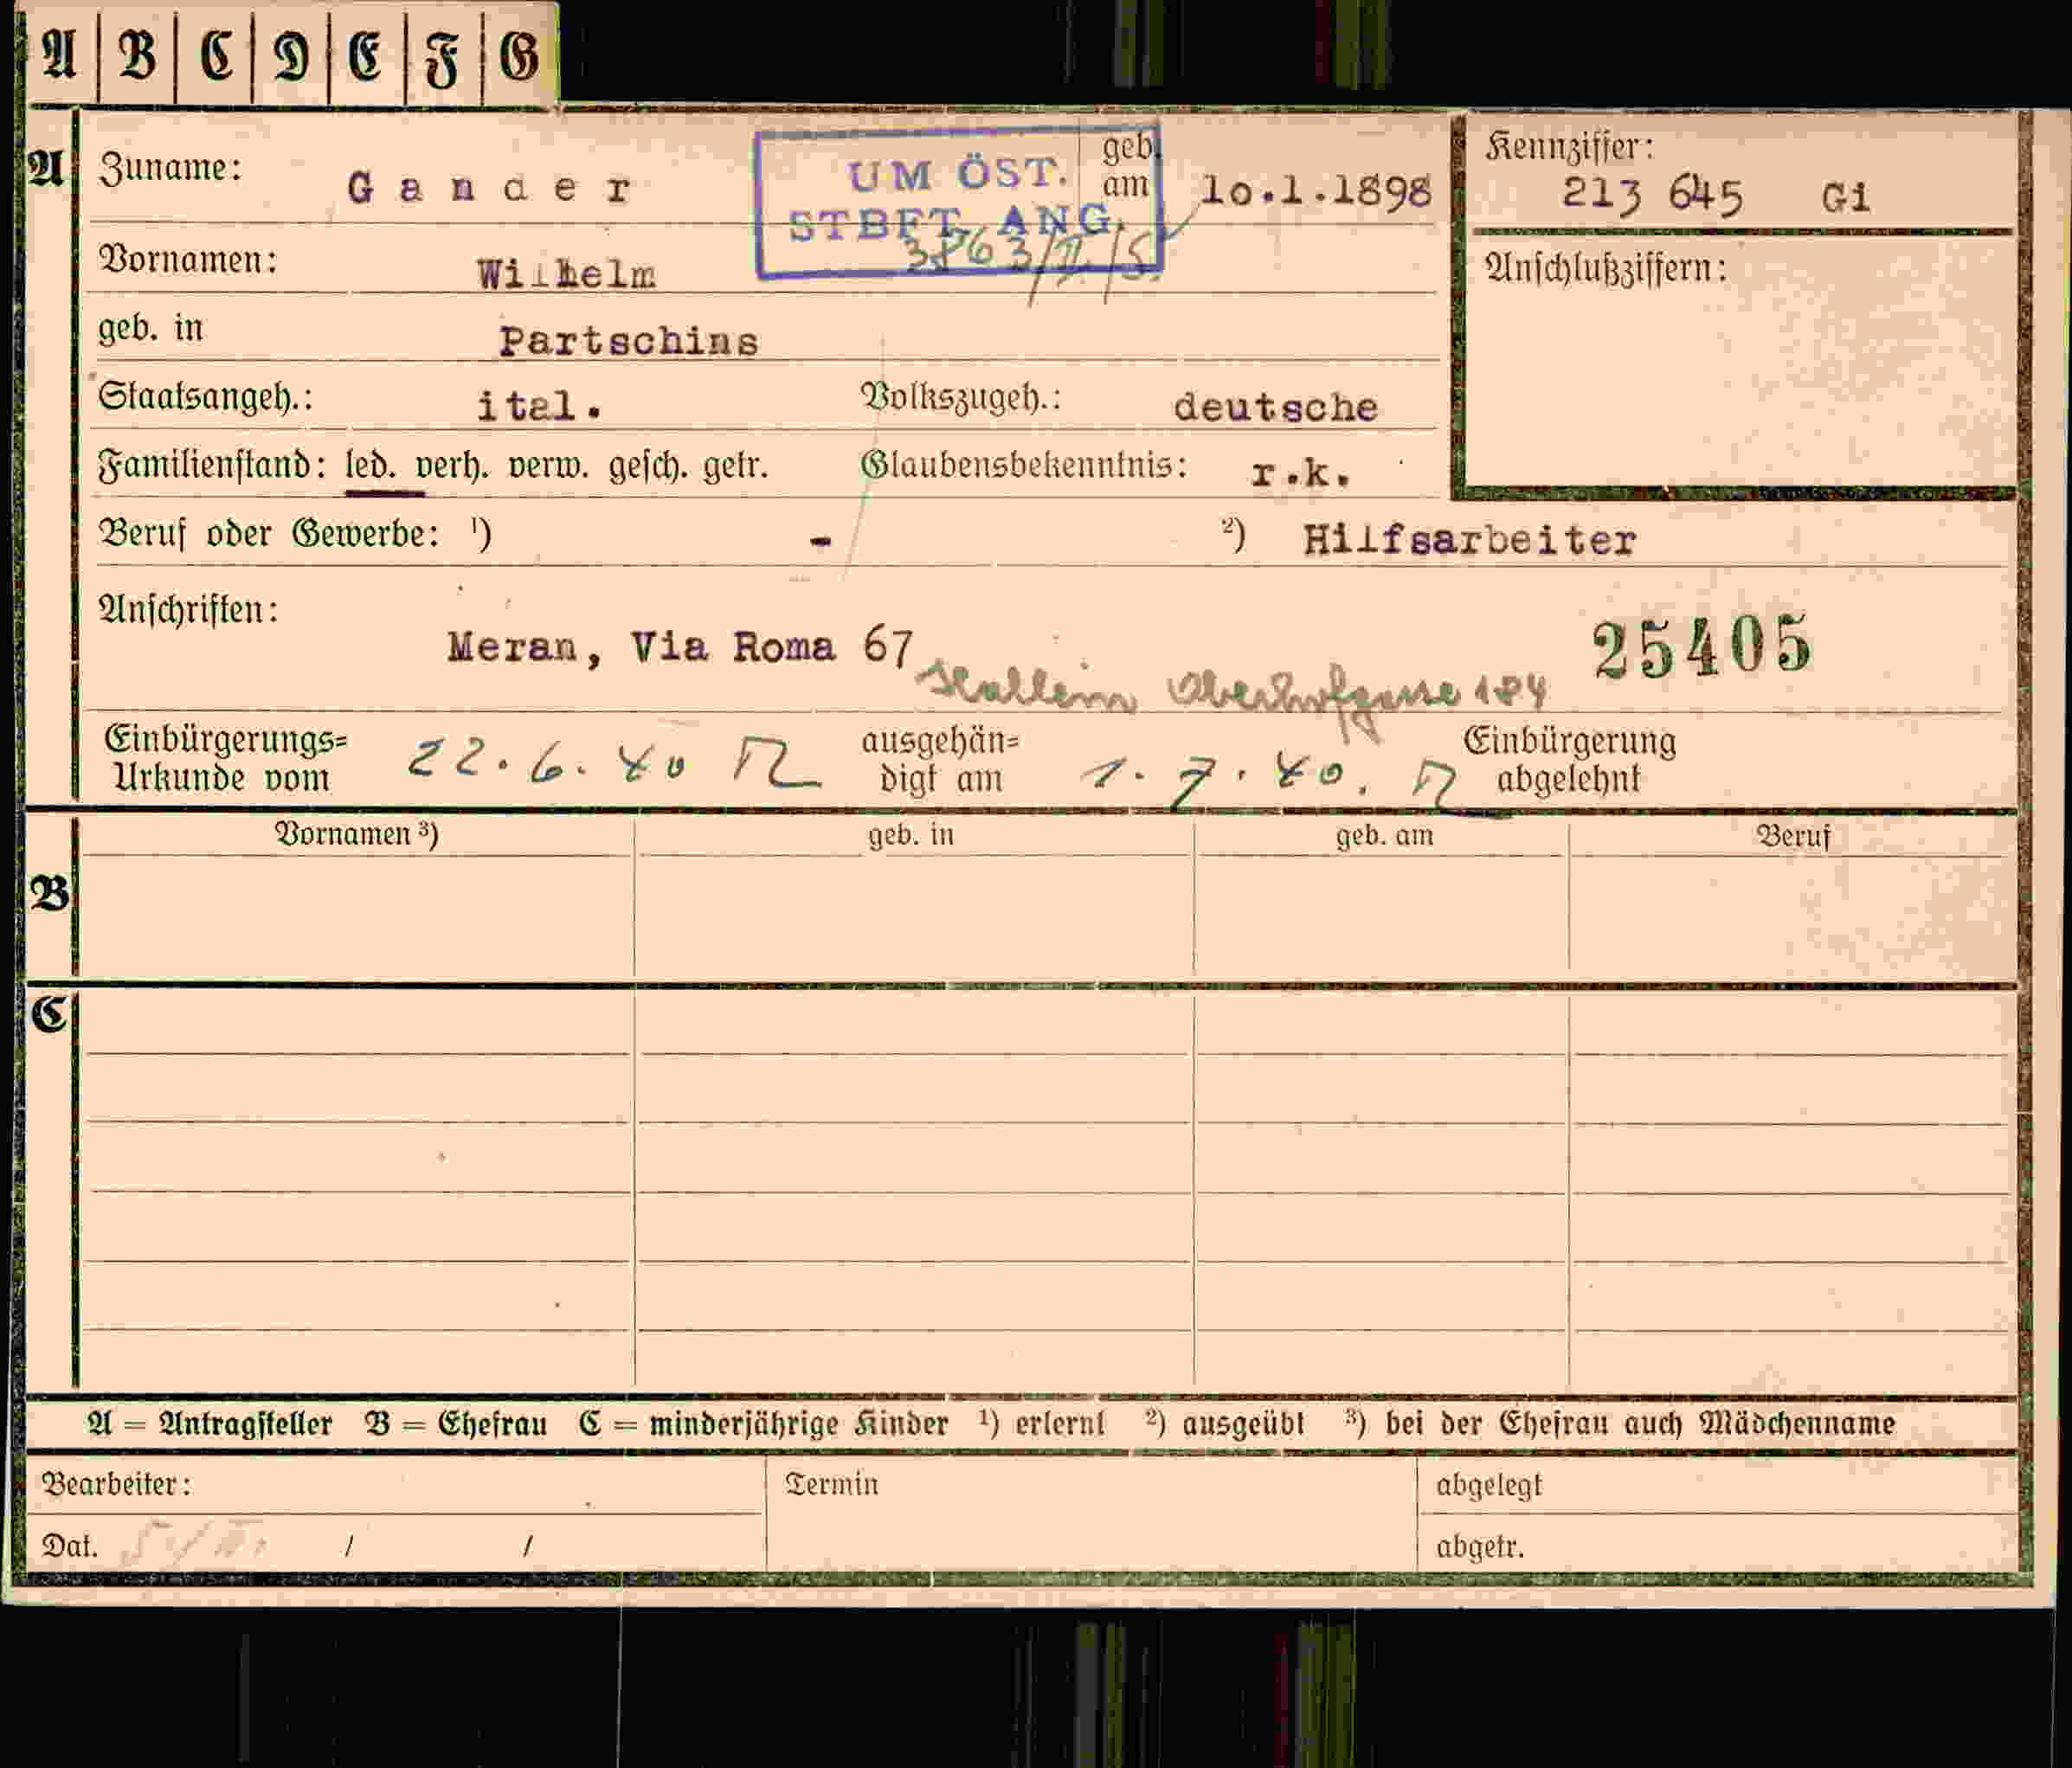 A B C D E F G
A Zuname: Gander geb. am 10.1.1898
UM ÖST.
STBFT. ANG.
Kennziffer:
213 645 Gi
Vornamen: Wilhelm
Anschlußziffern:
geb. in Partschins
Staatsangeh.: ital. Volkszugeh.: deutsche
Familienstand: led. verh. verw. gesch. getr. Glaubensbekenntnis: r.k.
Beruf oder Gewerbe: ¹) - ²) Hilfsarbeiter
Anschriften:
Meran, Via Roma 67 25405
Hallein Oberhofgasse 184
Einbürgerungs= Urkunde vom 22.6.40 ausgehän= digt am 1.7.40. Einbürgerung abgelehnt
Vornamen ³) geb. in geb. am Beruf
B
C
A = Antragsteller B = Ehefrau C = minderjährige Kinder ¹) erlernt ²) ausgeübt ³) bei der Ehefrau auch Mädchenname
Bearbeiter: Termin abgelegt
Dat. / / abgetr.